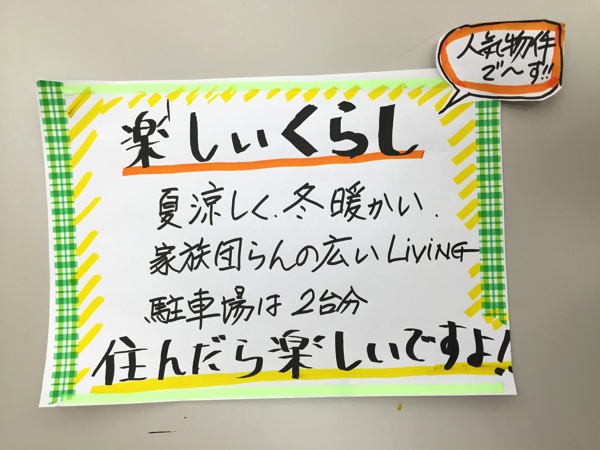 人気物件
で〜す!!
楽しいくらし
夏涼しく、冬暖かい、
家族団らんの広いLiViNG
駐車場は2台分
住んだら楽しいですよ!!